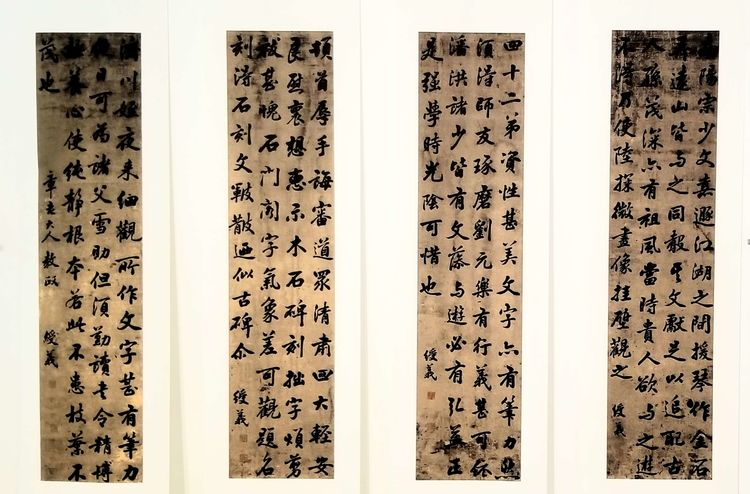 南陽宗少文嘉遯江湖之間援琴作金石
弄遠山皆与之同聲其文獻足以追配古
人孫茂深亦有祖風當時貴人欲与之遊
不得乃使陸探微畫像挂壁觀之 綬義
四十二弟資性甚美文字亦有筆力然
須得師友琢磨劉元樂有行義甚可依
潘洪諸少皆有文藻与遊必有弘益正
是强學時光陰可惜也 綬義
頓首辱手誨審道眾清肅四大輕安
良慰裹想惠示木石碑刻拙字煩剪
拔甚愧石門閣字氣象差可觀題名
刻得石刻文皴散逼似古碑尒 綬義
濟川姪夜來細觀所作文字甚有筆力
他日可為諸父雪助但須勤讀書令精博
極養心使純靜根本若此不患枝葉不
茂也
大人教政 綬義